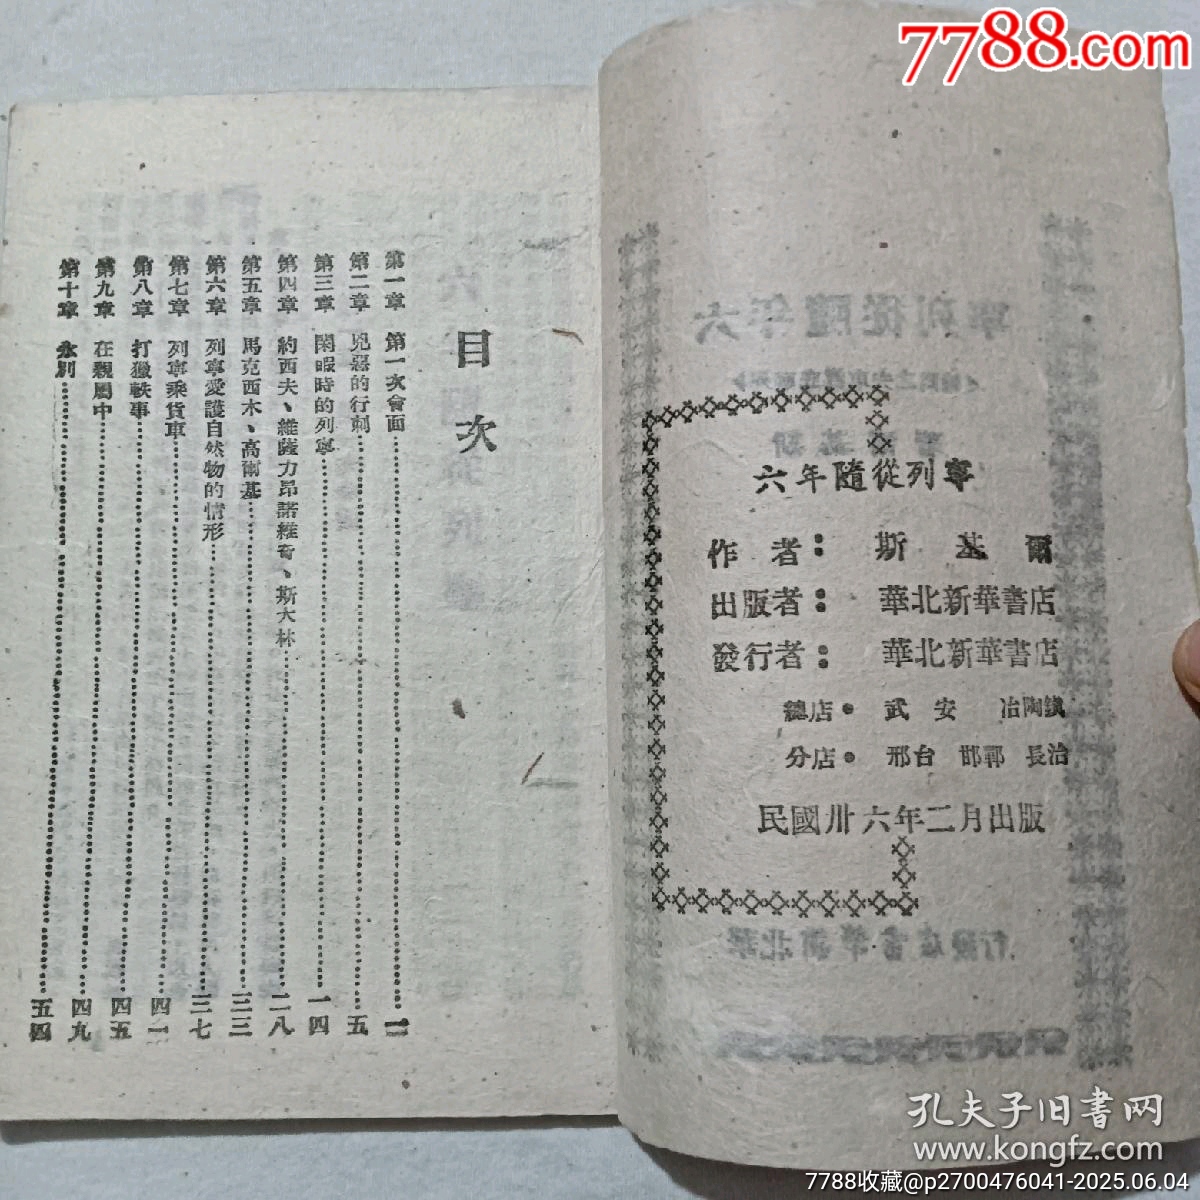 7788.com
六年隨從列寧
作者：斯基爾
出版者：華北新華書店
發行者：華北新華書店
總店・武安　冶陶鎮
分店・邢台　邯鄲　長治
民國卅六年二月出版
目次
第一章　第一次會面
第二章　兇惡的行刺　五
第三章　閑暇時的列寧　一四
第四章　約西夫、維薩力昂諾維奇、斯大林　二八
第五章　馬克西木、高爾基　三三
第六章　列寧愛護自然物的情形　三七
第七章　列寧乘貨車　四一
第八章　打獵軼事　四五
第九章　在親屬中　四九
第十章　永別　五四
孔夫子旧书网
www.kongfz.com
7788收藏@p2700476041-2025.06.04